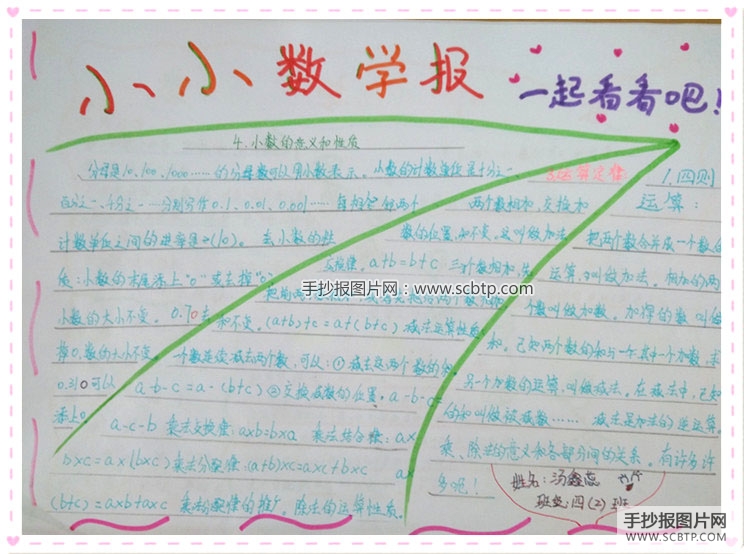 小小数学报
一起看看吧!
4.小数的意义和性质
分母是10.100.1000……的分母数可以用小数表示。小数的计数单位是十分一、
百分之一、千分之一……分别写作0.1、0.01、0.001……每相邻的两个
计数单位之间的进率是(10)。去小数的性
质:小数的末尾添上"0"或去掉"0"
小数的大小不变。0.70去
掉0.数的大小不变。
0.3 0可以
添上0.
3.运算定律:
两个数相加,交换加
数的位置,和不变。这叫做加法
交换律。a+b=b+c 三个数相加,先
把前两个
和不变。(a+b)+c=a+(b+c).减法运算性质:
一个数连续减去两个数,可以:①减去这两个数的和。
a-b-c=a-(b+c)②交换减数的位置。a-b-c=
a-c-b 乘法交换律:a×b=b×a 乘法结合律:a×
b×c=a×(b×c)乘法分配律:(a+b)×c=a×c+b×c a×
(b+c)=a×b+a×c 乘法分配律的推广。除法的运算性质。
1.四则
运算:
把两个数合并成一个数的
运算,叫做加法。相加的两
个数叫做加数。加得的数叫做
和。已知两个数的和与一个其中一个加数,求
另一个加数的运算,叫做减法。在减法中,已知
的和叫做被减数……减法是加法的逆运算。
乘、除法的意义和各部分间的关系。有许多许
多呢!
姓名:汤鑫蕊
班级:四(2)班
手抄报图片网-www.scbtp.com
手抄报图片网
WWW.SCBTP.COM